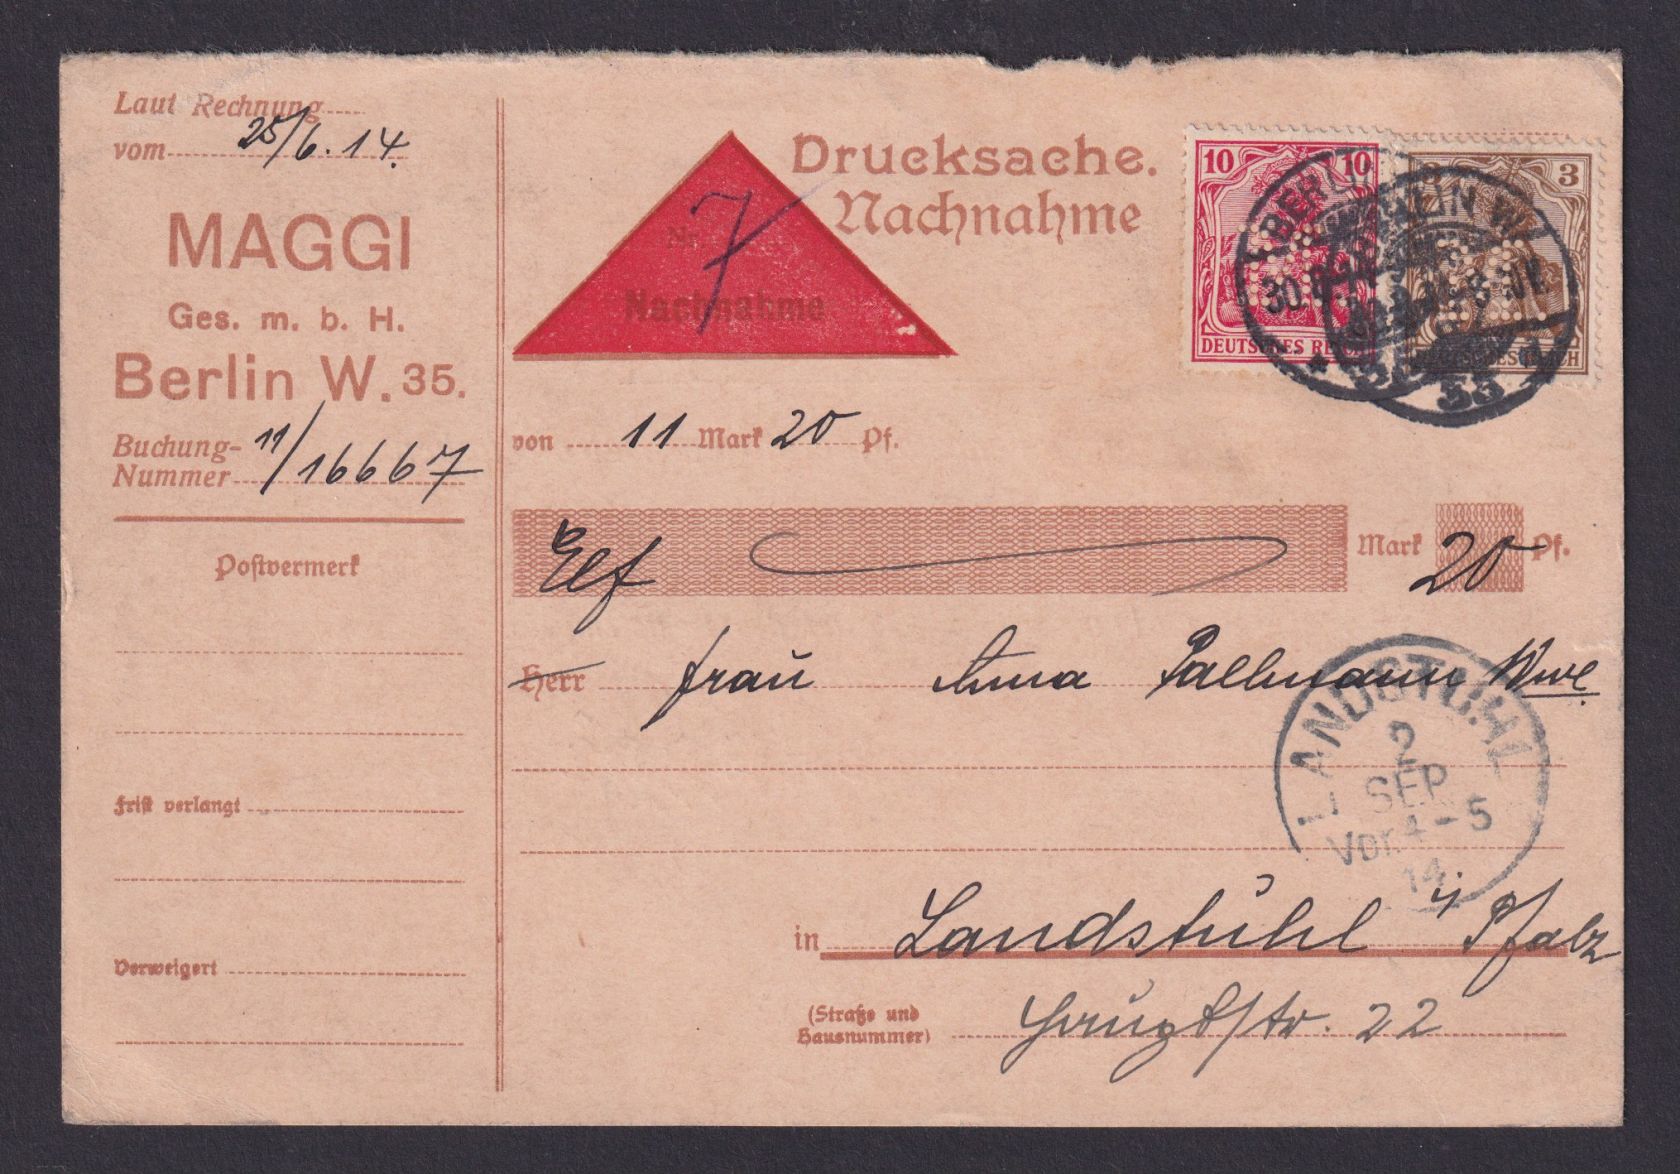 Laut Rechnung
vom 25/6.14.
MAGGI
Ges. m. b. H.
Berlin W. 35.
Buchung-
Nummer 11/16667
Postvermerk
Frist verlangt
Verweigert
Drucksache.
Nachnahme
Nr. 7
Nachnahme
10 10
DEUTSCHES REICH
3
DEUTSCHES REICH
BERLIN W
30.
35
von 11 Mark 20 Pf.
Elf Mark 20 Pf.
Herr Frau Anna Pallmann Wwe
LANDSTUHL
2
SEP
Vor. 4-5
14
in Landstuhl i/Pfalz
(Straße und
Hausnummer) Hauptstr. 22